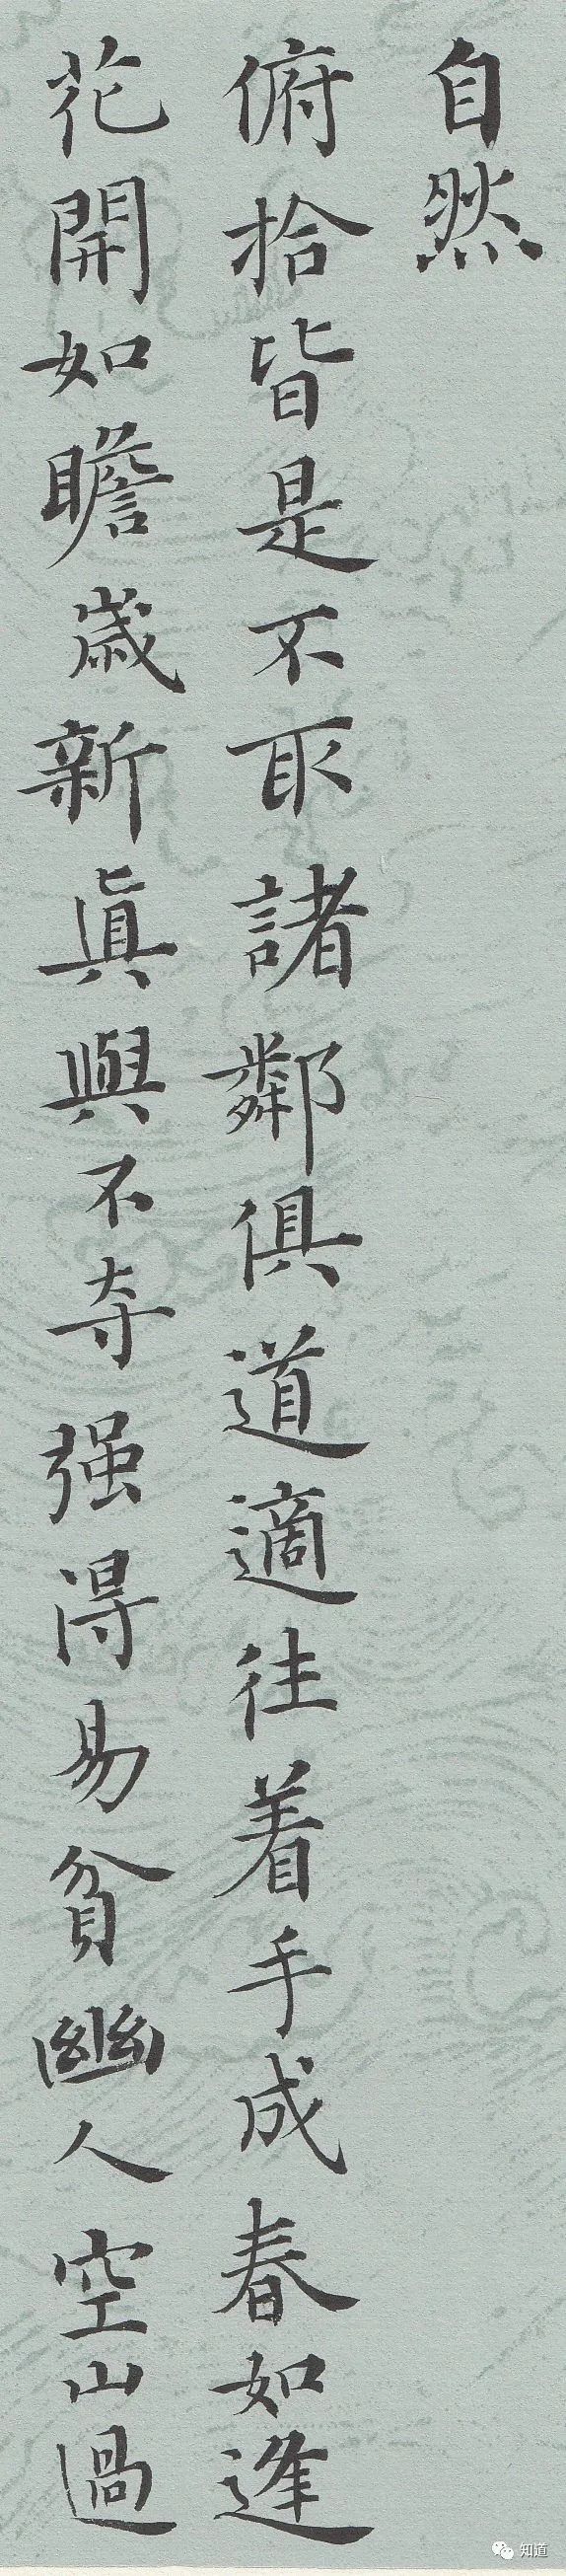 自然
俯拾皆是不取諸鄰俱道適往着手成春如逢
花開如瞻歳新眞與不夺强得易貧幽人空山過
知道